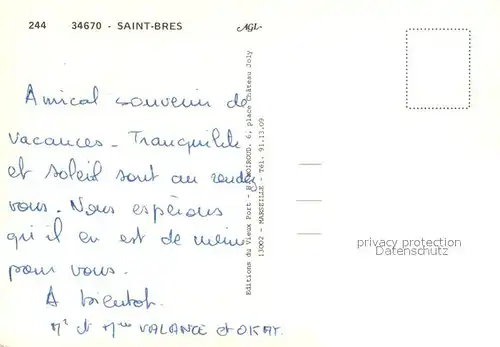 244 34670 - SAINT-BRES
AGL
Amical souvenir de
vacances - Tranquilité
et soleil sont au rendez
vous. Nous espérons
qu'il en est de même
pour vous.
A bientôt.
Mr et Mme VALANCE
Editions du Vieux Port - 6, place Château Joly
13002 - MARSEILLE - Tél. 91.13.09
privacy protection
Datenschutz